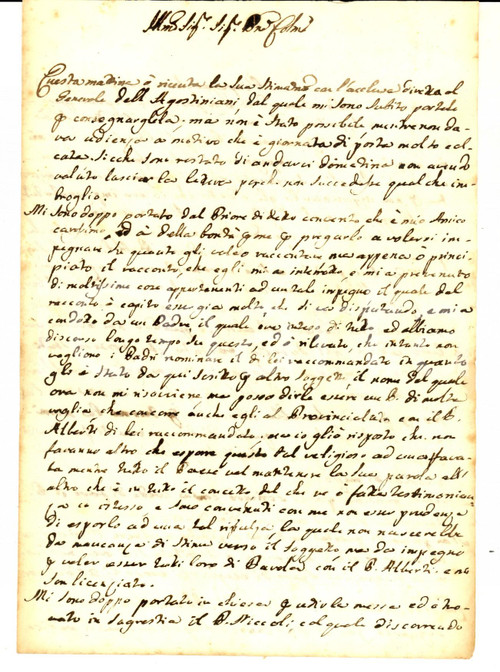 Illmo Sigr. Sigr. Pne. Colmo
Questa mattina ò riceuta la Sua Stimatma con l'acclusa diretta al
Generale dell Agostiniani dal quale mi sono subito portato
p consegnargliela, ma non è stato possibile mentre non da-
va udienza a motivo che è giornata di posta molto
Sicche sono restato di andarci domattina non avendo
voluto lasciar la lettera perche non succedesse qualche im-
broglio.
Mi sono doppo portato dal Priore di detto convento che è mio Amico
carissimo, ed à della bontà p me p pregarlo a volersi im-
pegnare in quanto gli volevo raccontare ma appena ò princi-
piato il racconto, che egli mi à interrotto, e mi à prevenuto
di moltissime cose appartenenti ad un tal impegno il quale dal
racconto è capito esser già molto, che si va disputando, e mi à
condotto da un Padre, il quale era inteso di tutto, ed abbiamo
discorso longo tempo su questo, ed è rilevato, che intanto non
vogliono i Padri nominare il di lei raccomandato in quanto
gl'è stato da qui scritto p altro soggetto il nome del quale
ora non mi risoviene ma posso dirle essere un P. di molta
voglia che concorre anche egli al Provincialato con il P.
Alberti di lei raccommandato; ma io gli ò risposto che non
faranno altro che esporre questo tal religioso ad una
ta mentre tutto il Paese val mantenere la sua parola all'
altro che è in tutto il concetto, del che ne è fatta testimonian-
za io istesso, e sono convenuti con me non esser prudenza
di esporlo ad una tal ripulza la quale non nascerebbe
da mancanza di stima verso il soggetto ma da impegno
p voler esser tutti loro di Parola con il P. Alberti e mi
son licenziato.
Mi sono doppo portato in chiesa p udir la messa ed ò tro-
vato in sagrestia il P. Niccoli, col quale discorrendo